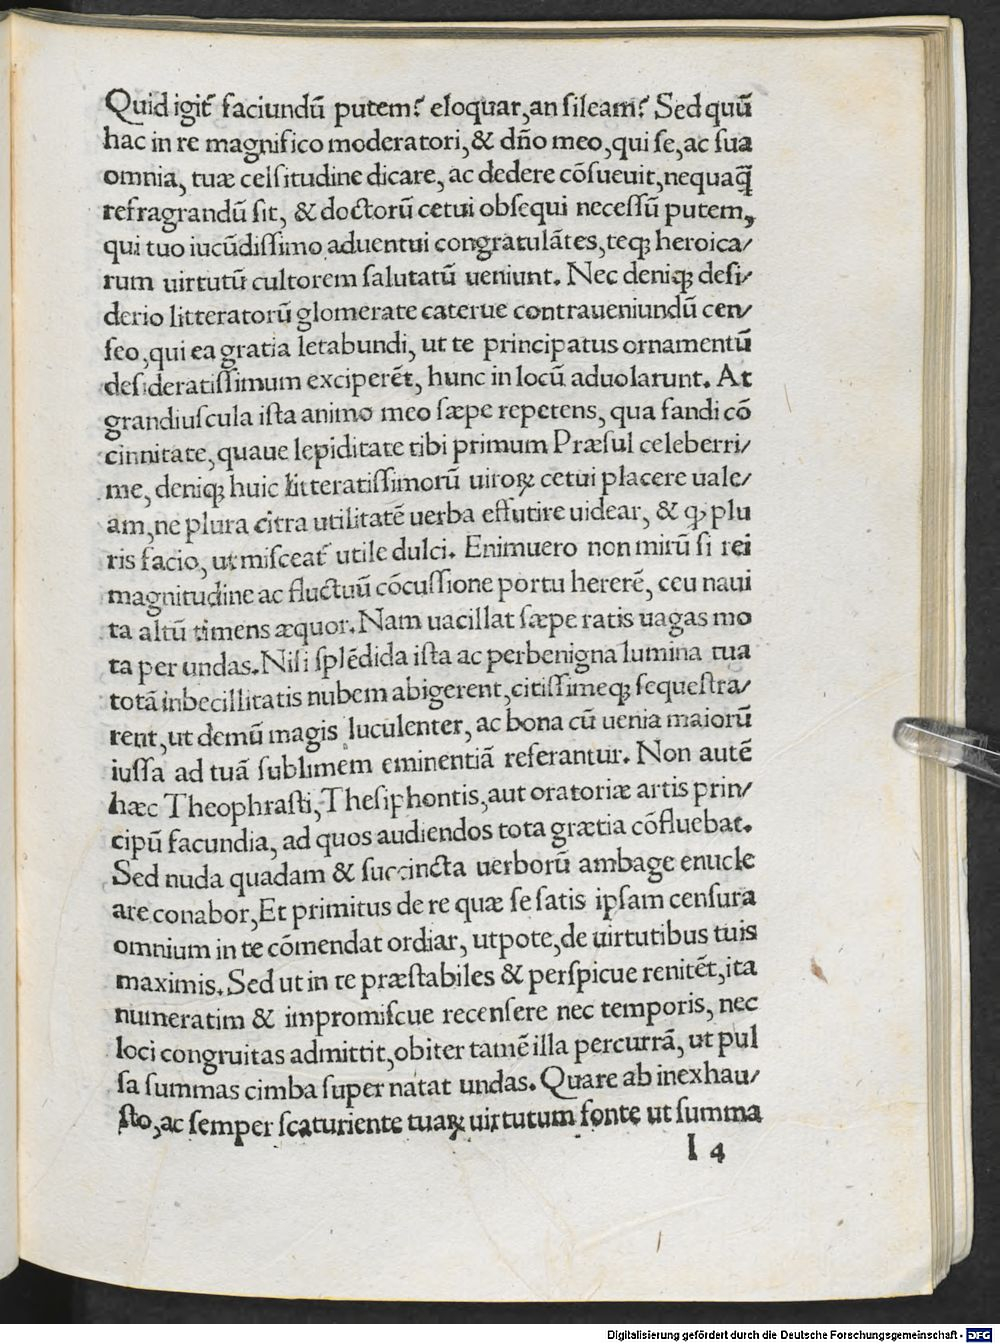 Quid igit᷑ faciundū putem? eloquar, an ſileam? Sed quū
hac in re magnifico moderatori, & dño meo, qui ſe, ac ſua
omnia, tuæ celſitudine dicare, ac dedere cōſueuit, nequaq̄
refragrandū ſit, & doctorū cetui obſequi neceſſū putem,
qui tuo iucūdiſſimo aduentui congratulātes, teqꝫ heroica/
rum uirtutū cultorem ſalutatū ueniunt. Nec deniqꝫ deſi/
derio litteratorū glomerate caterue contraueniundū cen/
ſeo, qui ea gratia letabundi, ut te principatus ornamentū
deſideratiſſimum exciperēt, hunc in locū aduolarunt. At
grandiuſcula iſta animo meo ſæpe repetens, qua fandi cō
cinnitate, quaue lepiditate tibi primum Præſul celeberri/
me, deniqꝫ huic litteratiſſimorū uiroꝝ cetui placere uale/
am, ne plura citra utilitatē uerba effutire uidear, & ꝙ plu
ris facio, ut miſceat᷑ utile dulci. Enimuero non mirū ſi rei
magnitudine ac fluctuū cōcuſſione portu hererē, ceu naui
ta altū timens æquor. Nam uacillat ſæpe ratis uagas mo
ta per undas. Niſi ſplēdida iſta ac perbenigna lumina tua
totā inbecillitatis nubem abigerent, citiſſimeqꝫ ſequeſtra/
rent, ut demū magis luculenter, ac bona cū uenia maiorū
iuſſa ad tuā ſublimem eminentiā referantur. Non autē
hæc Theophraſti, Theſiphontis, aut oratoriæ artis prin/
cipū facundia, ad quos audiendos tota grætia cōfluebat.
Sed nuda quadam & ſuccincta uerborū ambage enucle
are conabor, Et primitus de re quæ ſe ſatis ipſam cenſura
omnium in te cōmendat ordiar, utpote, de uirtutibus tuis
maximis. Sed ut in te præſtabiles & perſpicue renitēt, ita
numeratim & impromiſcue recenſere nec temporis, nec
loci congruitas admittit, obiter tamē illa percurrā, ut pul
ſa ſummas cimba ſuper natat undas. Quare ab inexhau/
ſto, ac ſemper ſcaturiente tuaꝝ uirtutum fonte ut ſumma
I 4
Digitalisierung gefördert durch die Deutsche Forschungsgemeinschaft - DFG